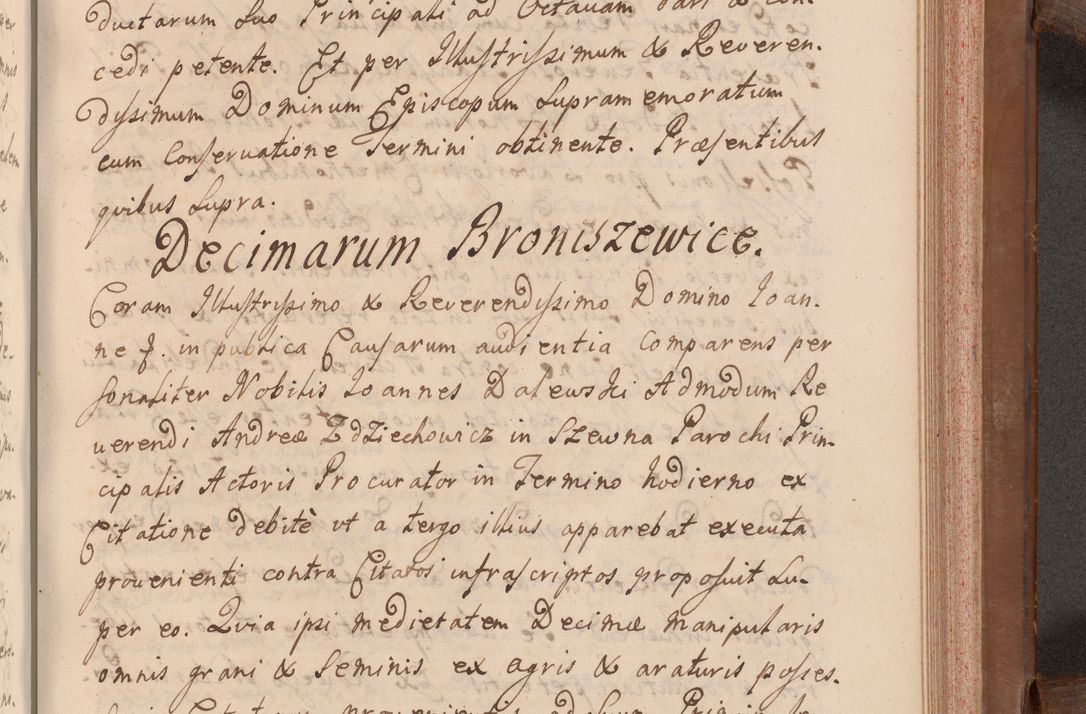 ductarum suo Principali ad Octavam dari & con-
cedi petente. Et per Illustrissimum & Reveren-
dissimum Dominum Episcopum supramemoratum
cum Conservatione Termini obtinente. Præsentibus
quibus supra.
Decimarum Broniszewice.
Coram Illustrissimo & Reverendissimo Domino Ioan-
ne f. in publica Causarum audientia Comparens per
sonaliter Nobilis Ioannes Dalewski Admodum Re
uerendi Andreæ Zdziechowicz in Szewna Parochi Prin-
cipalis Actoris Procurator in Termino hodierno ex
Citatione debitè ut a tergo illius apparebat executa
provenienti contra Citatos infrascriptos proposuit su-
per eo. Quia ipsi medietatem Decimæ manipularis
omnis grani & Seminis ex agris & araturis posses-